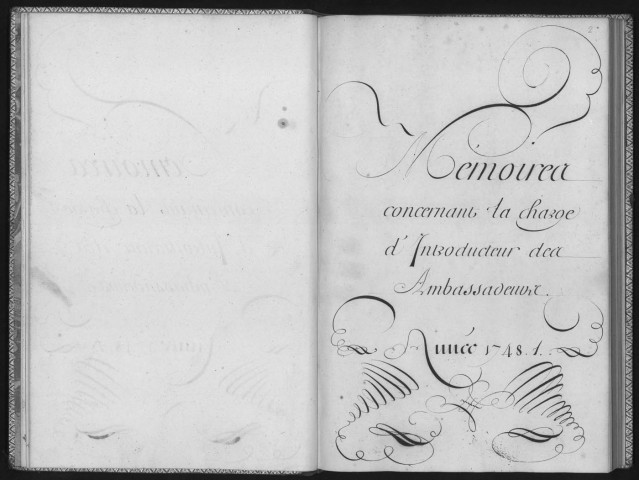 Memoires
concernant la charge
d'Introducteur des
Ambassadeurs.
Année 1748. 1.